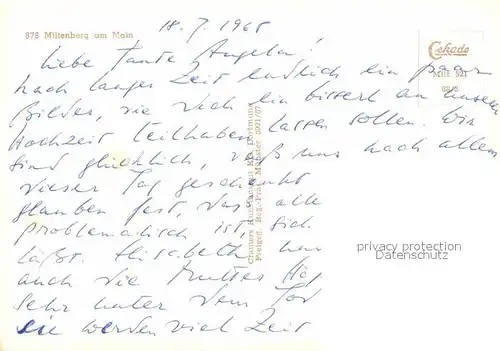 878 Miltenberg am Main
18.7.1965
Cekade
Milt 521
Liebe Tante Angela!
nach langer Zeit endlich ein paar
Bilder, die dich ein bisserl an unserer
Hochzeit teilhaben lassen sollen. Wir
sind glücklich, daß uns nach allem
dieser Tag geschenkt
glauben fest, das alle
problematisch ist, sich
läßt. Elisabeth
auch die Mutter
sehr unter dem Tod
sie werden viel Zeit
Freigeg. Reg.-Präs. Münster 0921/67
privacy protection
Datenschutz